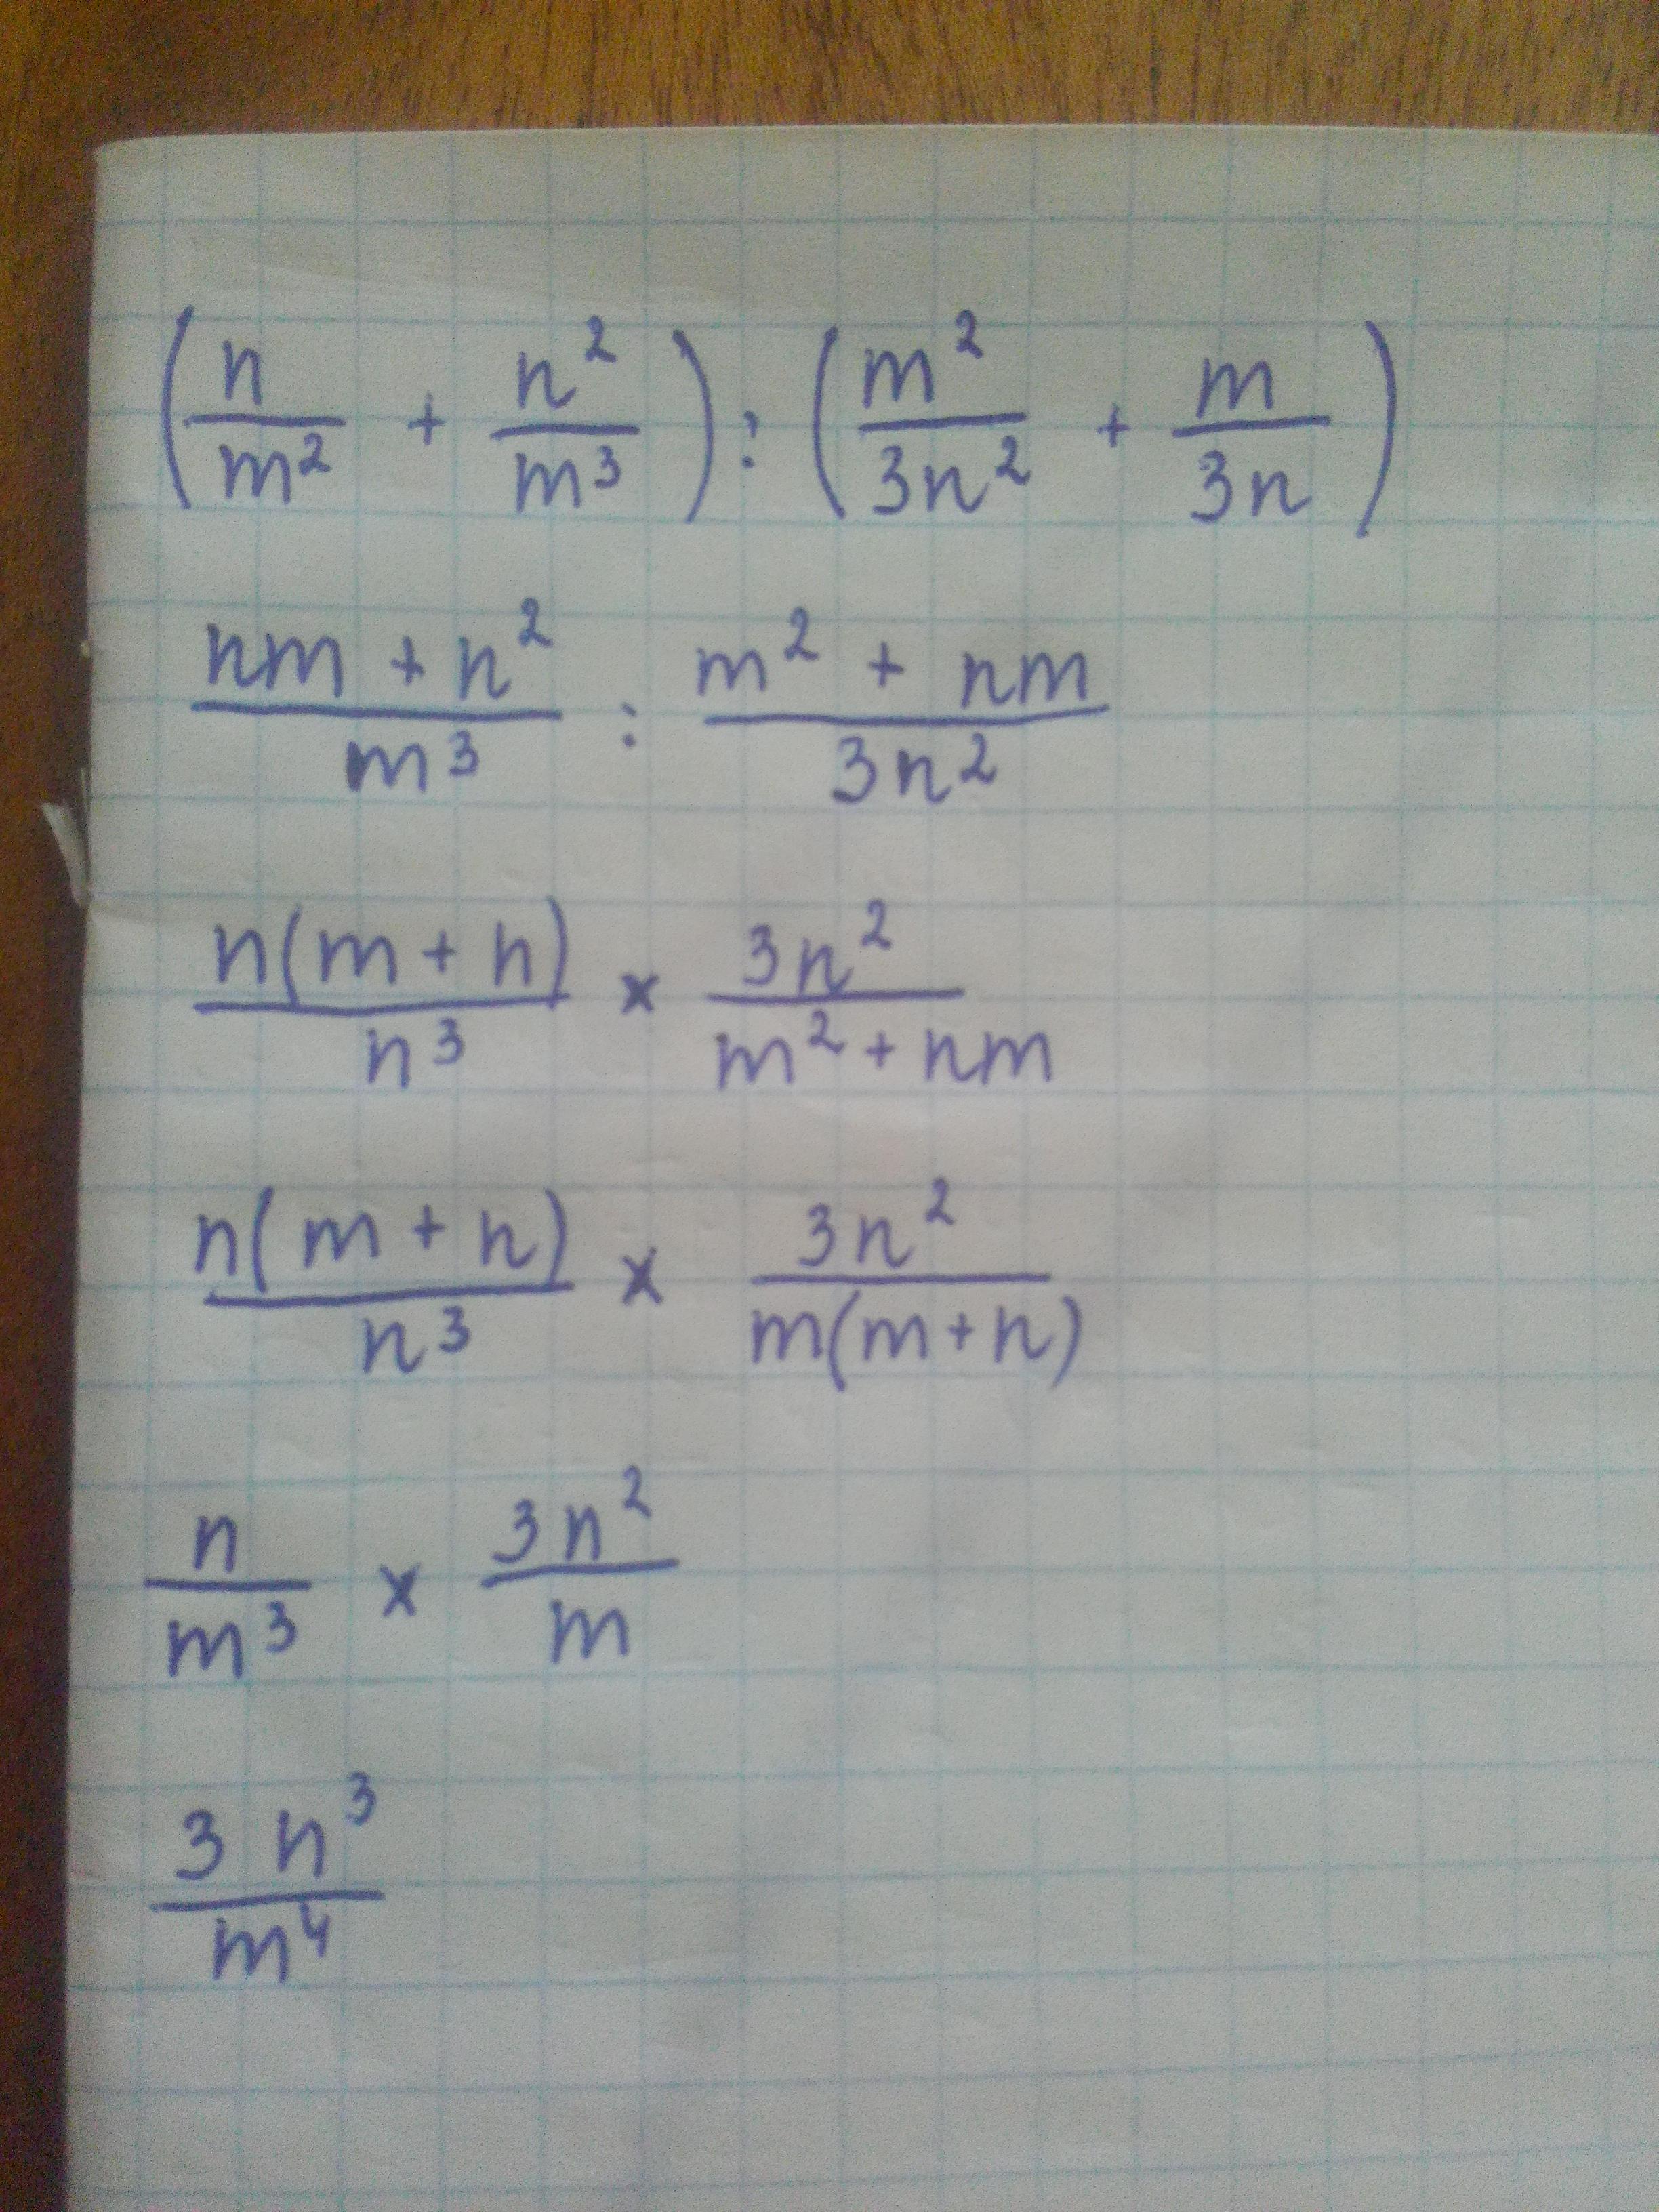 (n/m² + n²/m³) : (m²/3n² + m/3n)
(nm + n²)/m³ : (m² + nm)/3n²
n(m + n)/n³ × 3n²/(m² + nm)
n(m + n)/n³ × 3n²/m(m + n)
n/m³ × 3n²/m
3n³/m⁴